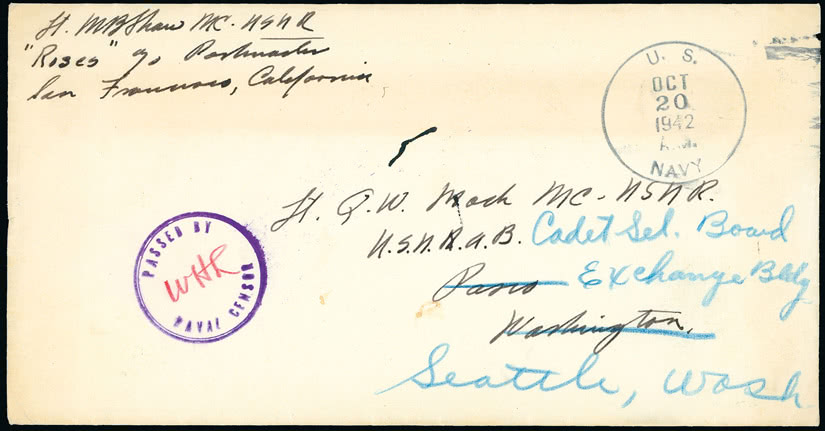 Lt. M B Shaw MC-USNR
"Roses" c/o Postmaster
San Francisco, California
U. S.
OCT
20
1942
A.M.
NAVY
Lt. Q. W. Mack MC-USNR.
U.S.N.R.A.B. Cadet Sel. Board
Pasco Exchange Bldg
Washington.
Seattle, Wash
PASSED BY
WHR
NAVAL CENSOR